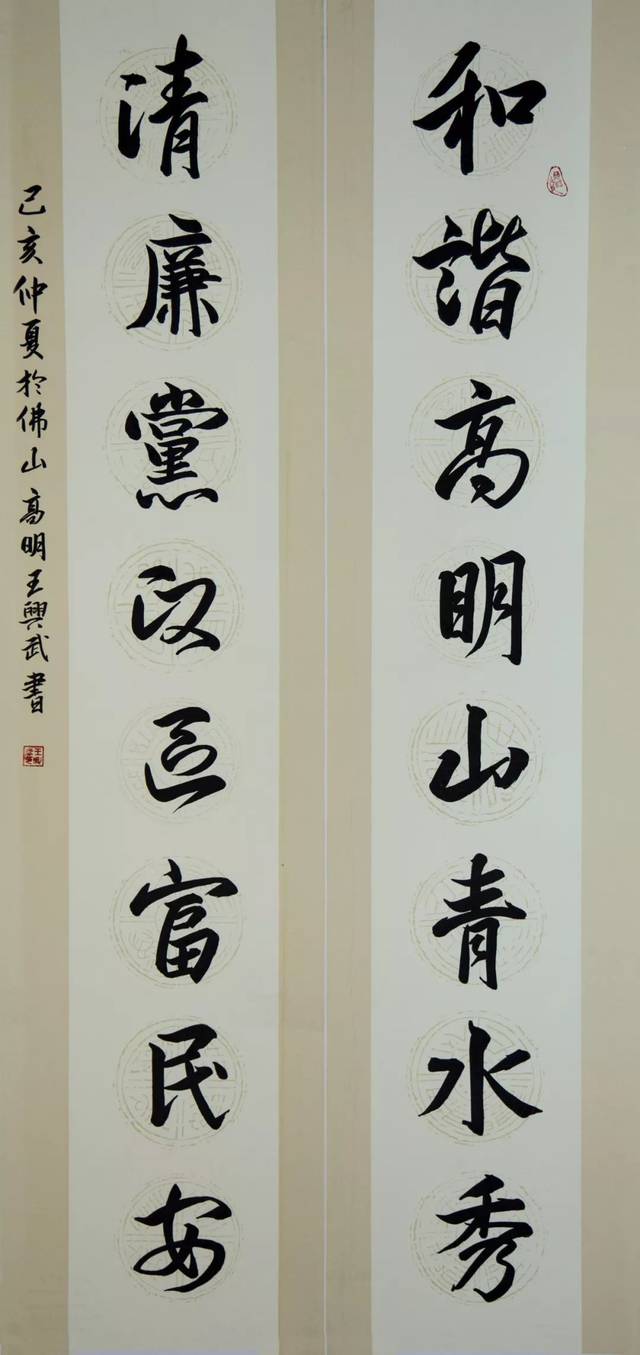 和諧高明山青水秀
清廉黨政區富民安
己亥仲夏於佛山高明王興武書